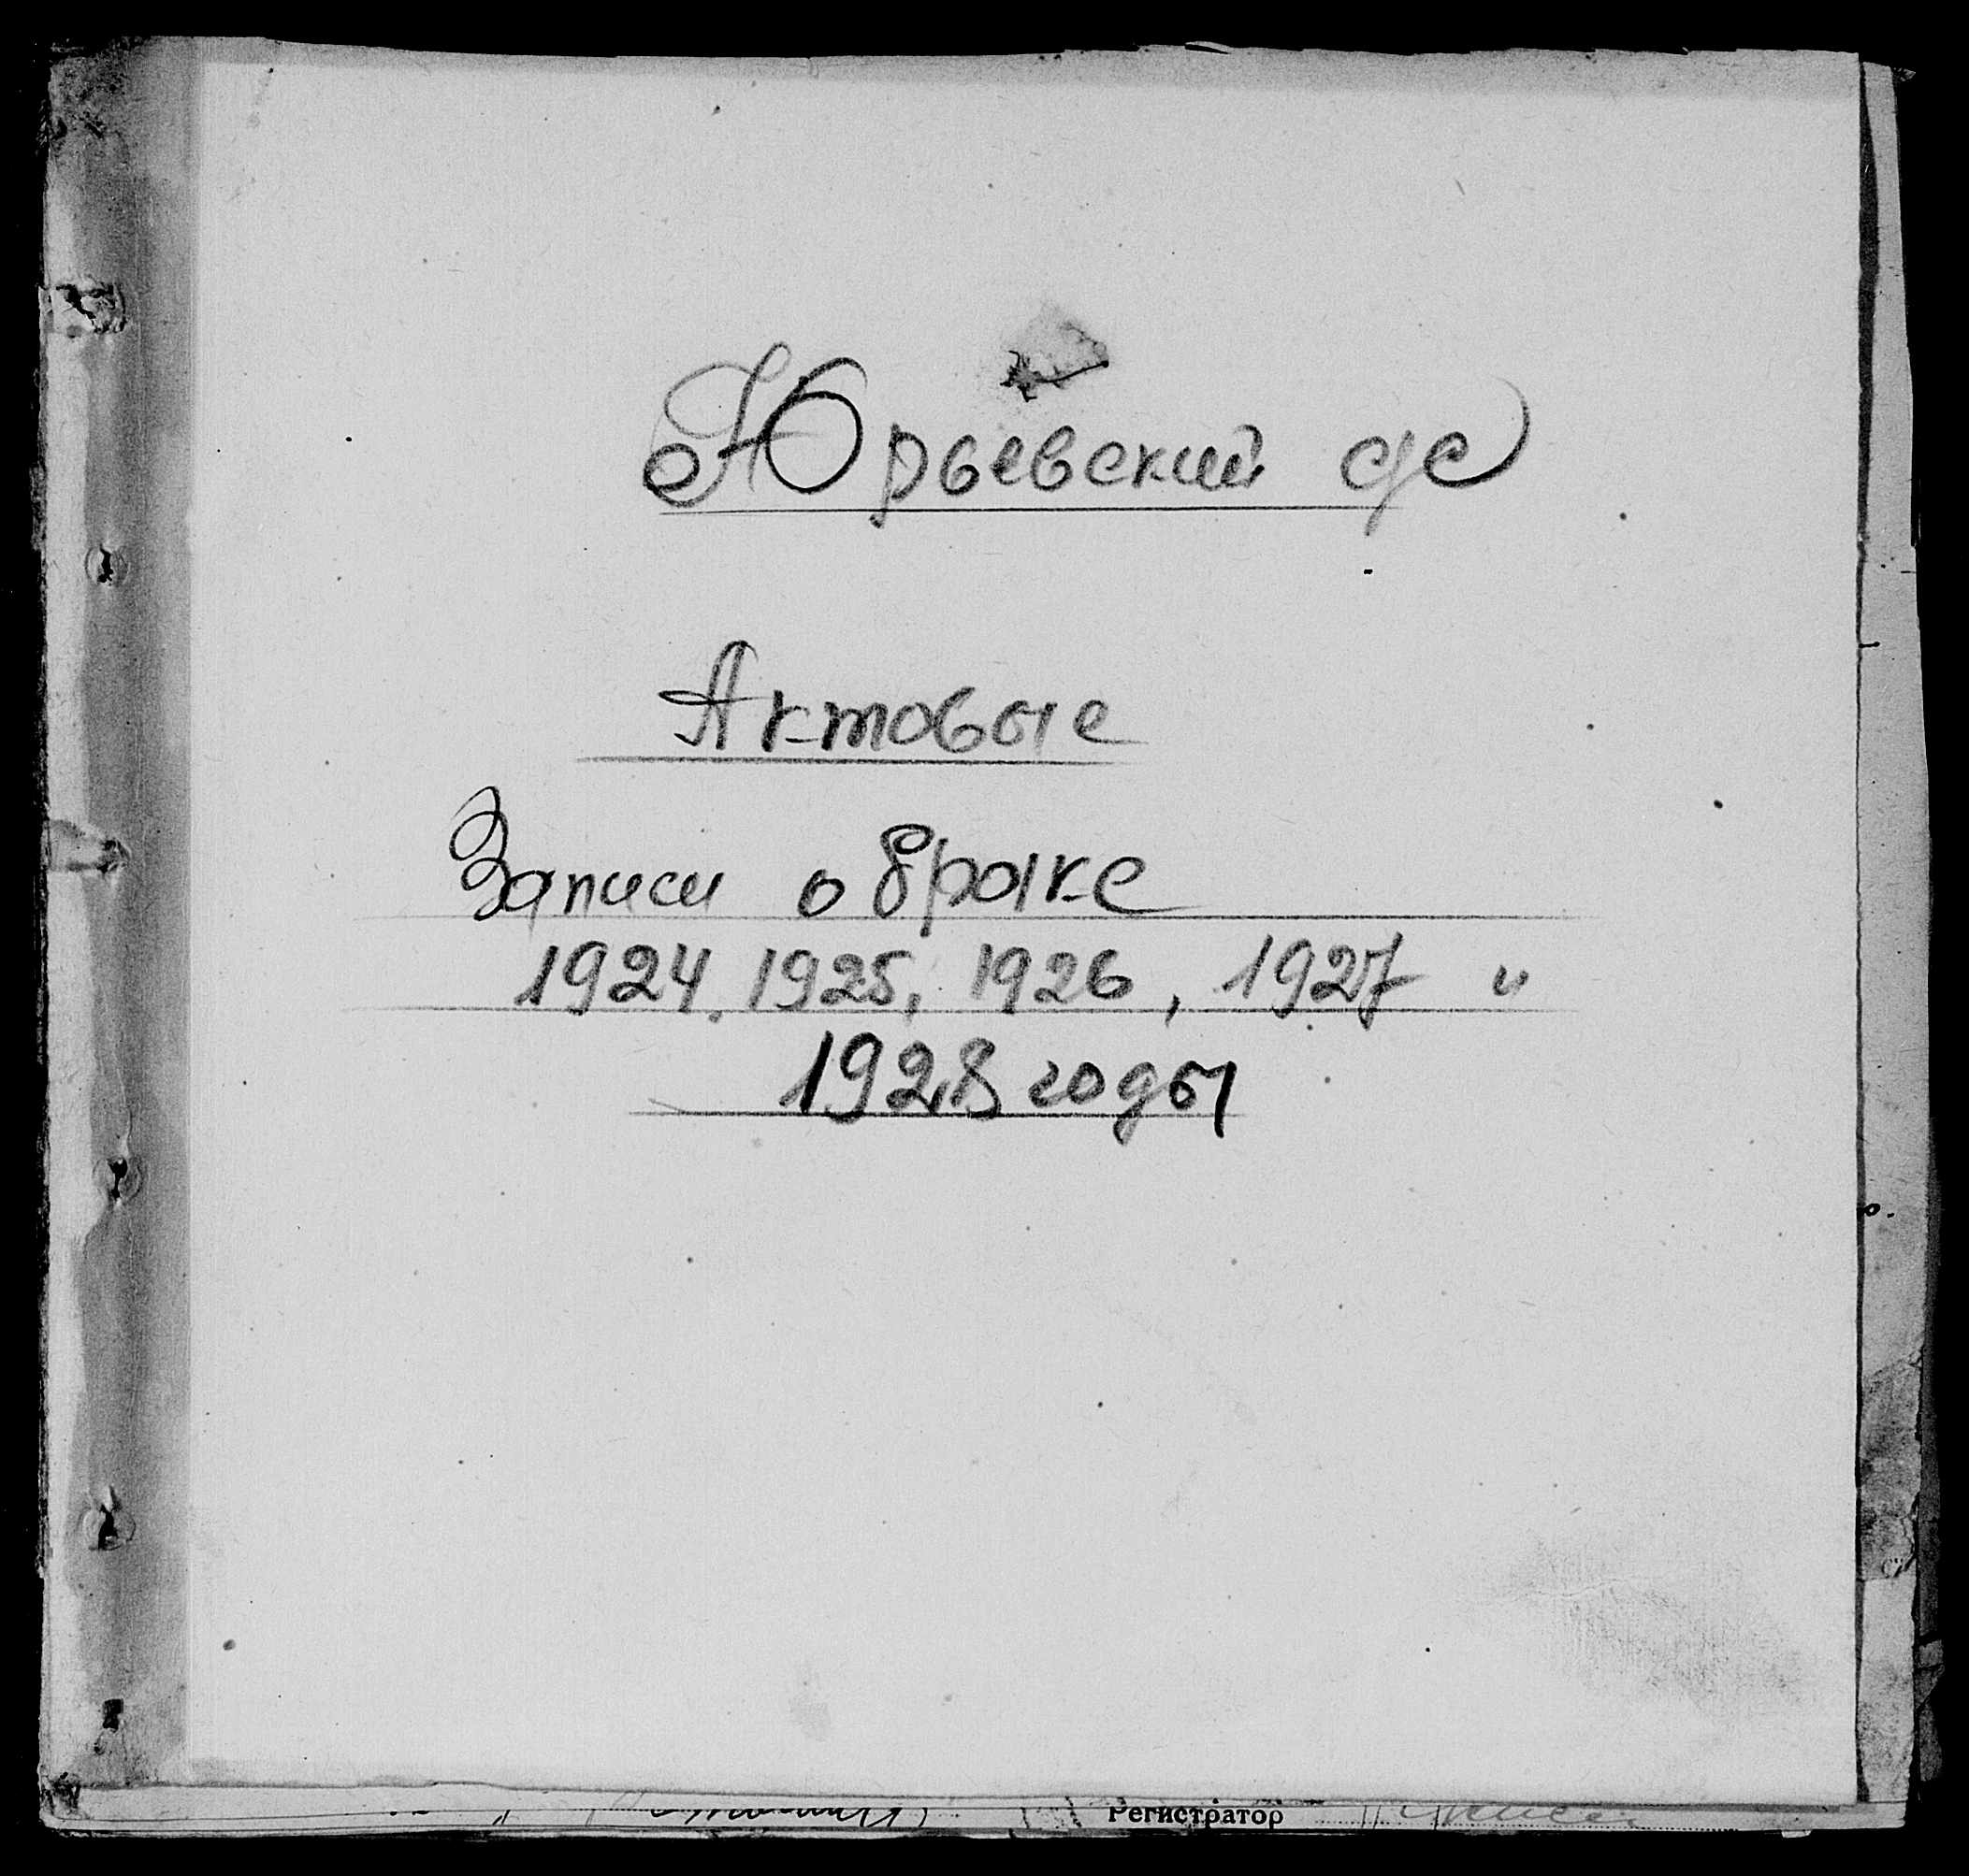 Юрьевский с/с
Актовые
Записи о браке
1924, 1925, 1926, 1927 и
1928 годы
Регистратор